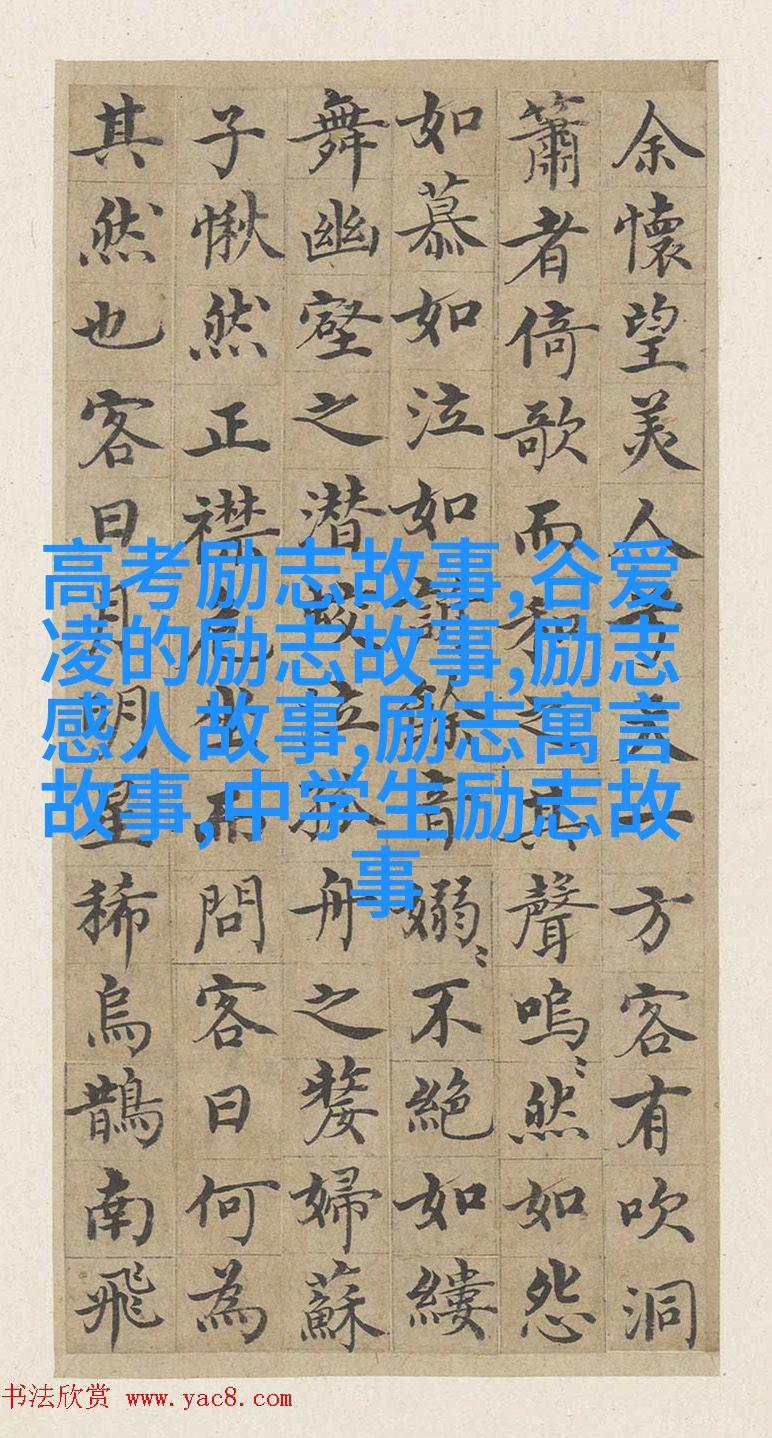 余懷望美人兮天一方客有吹洞
簫者倚歌而和之其聲嗚〻然如怨
如慕如泣如訴餘音嫋〻不絕如縷
舞幽壑之潜蛟泣孤舟之嫠婦蘇
子愀然正襟危坐而問客曰何為
其然也客曰月明星稀烏鵲南飛
高考励志故事,谷爱
凌的励志故事,励志
感人故事,励志寓言
故事,中学生励志故
事
书法欣赏 www.yac8.com